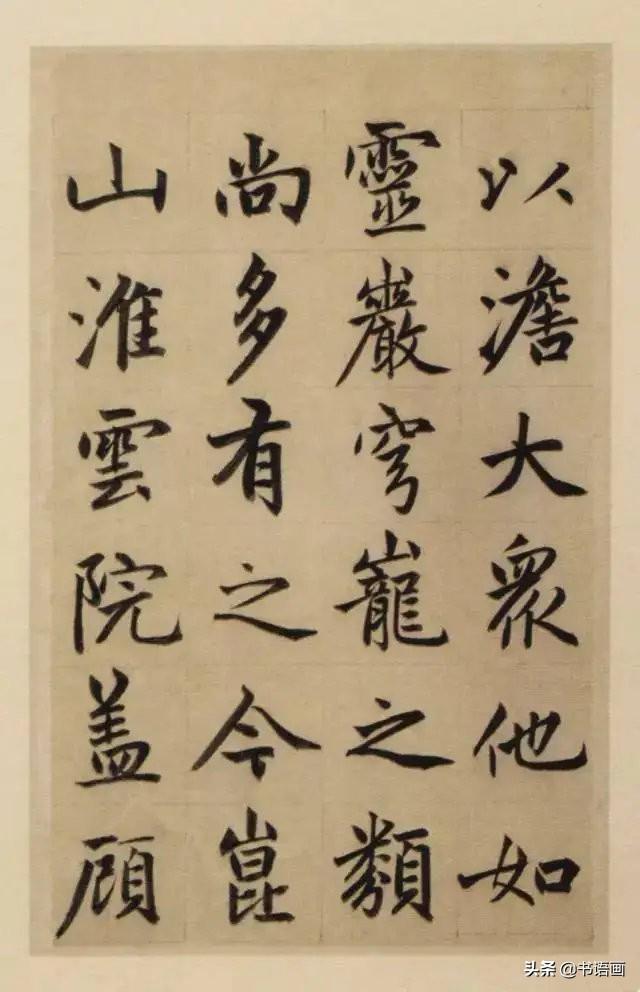 以澹大衆他如
靈巖穹巃之類
尚多有之今崑
山淮雲院盖顧
头条 @书语画